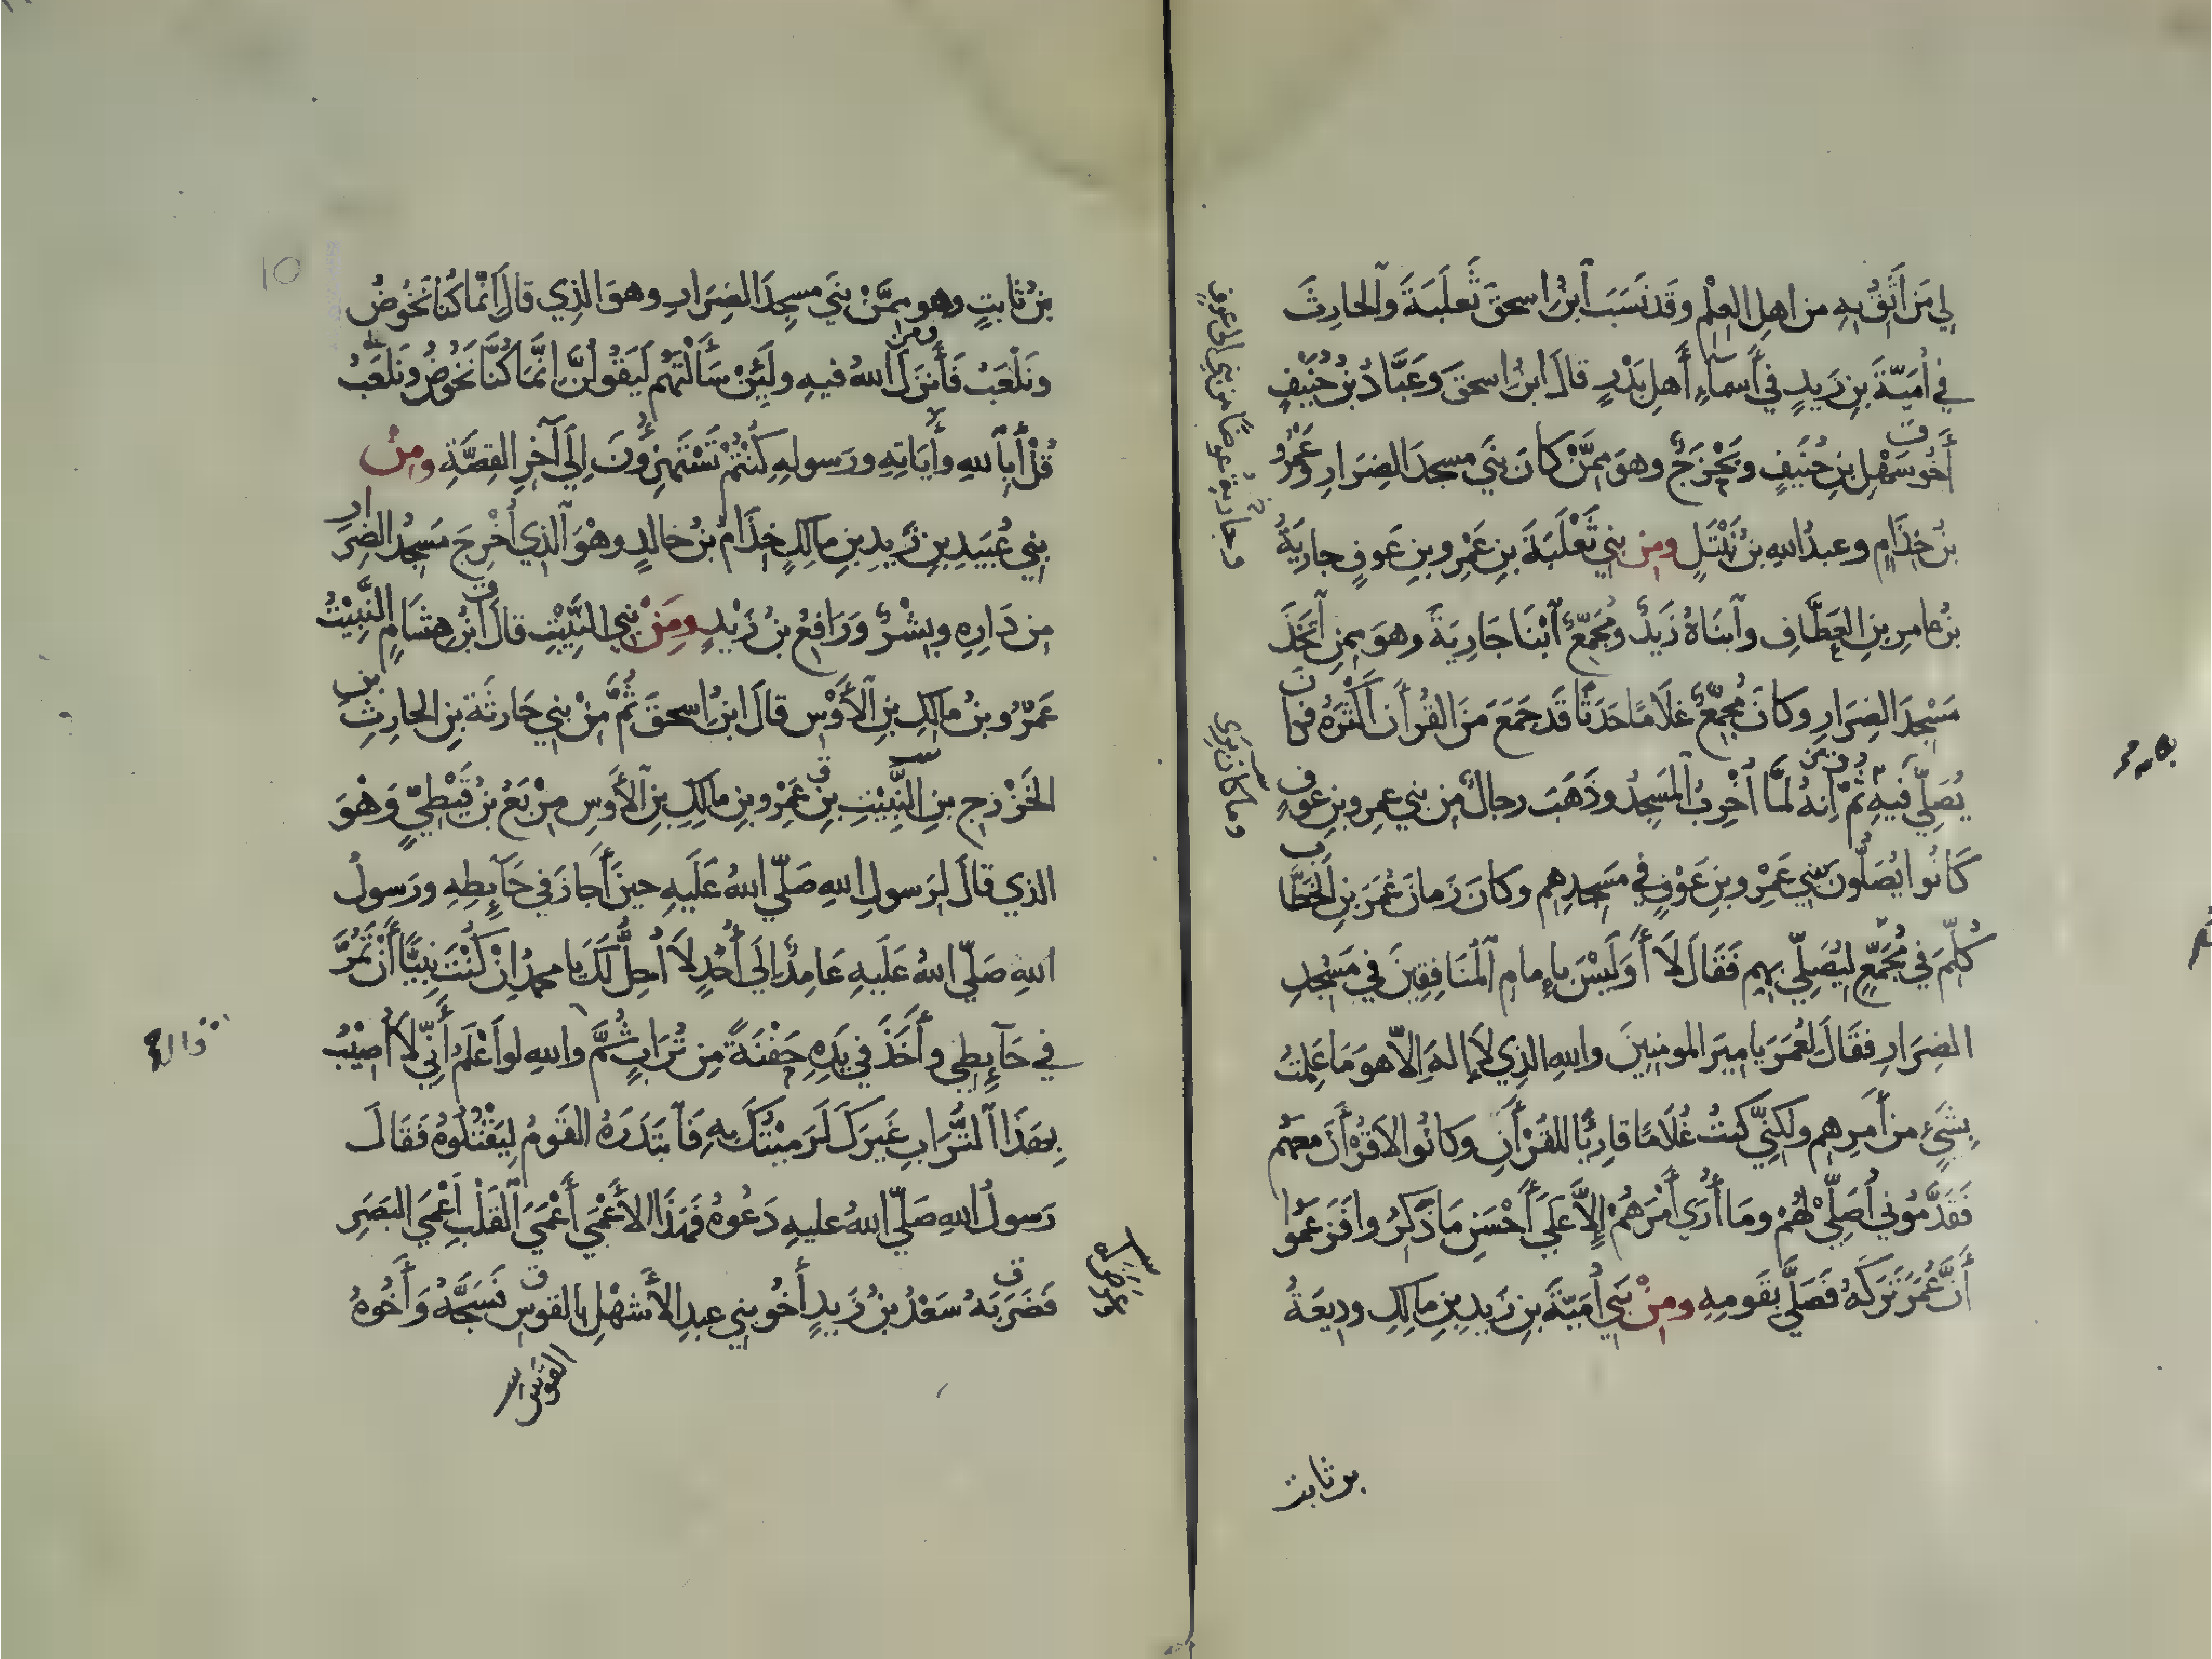 لِي مَن أَثِقُ بِهِ من اهلِ العِلْمِ وقَد نَسَبَ ٱبنُ اسحقَ ثَعلَبَةَ وٱلحارِثَ
في أُمَيَّةَ بنِ زَيدٍ في أَسماءِ أَهلِ بَدْرٍ قالَ ابنُ اسحقَ وعَبَّادُ بنُ حُنَيْفٍ
أَخُو سَهْلِ بنِ حُنَيفٍ وبَحْزَجٌ وهوَ مِمَّنْ كانَ بَنَي مسجدَ الضِرَارِ وعَمْرُو
بنُ خِذَامٍ وعبدُ اللهِ بنُ نَبْتَلٍ ومِن بَنِي ثَعْلَبَةَ بنِ عَمْرِو بنِ عَوفٍ جارِيَةُ
بنُ عامرِ بنِ العَطَّافِ وٱبنَاهُ زَيدٌ ومُجَمِّعٌ ٱبْنَا جَارِيَةَ وهوَ ممنِ ٱتَّخَذَ
مَسْجِدَ الضِرَارِ وكانَ مُجَمِّعٌ غُلَامًا حَدَثًا قَد جَمَعَ مِنَ القُرأَنِ أَكْثَرَهُ فكان
يُصَلِّي فيهِ ثُمَّ انهُ لمَّا أُخْرِبَ ٱلمَسجِدُ وذَهَبَ رجالٌ من بني عمرِو بنِ عوفٍ
كَانُوا يُصَلُّونَ ببَنِي عَمْرِو بنِ عَوْفٍ في مَسجدِهِم وكانَ زَمانَ عُمَرَ بنِ الخَطَّاب
كُلِّمَ في مُجَمِّعٍ ليُصَلِّيَ بهِم فَقَالَ لَا أَوَلَيْسَ بإِمامِ ٱلمُنَافِقِينَ في مَسْجِدِ
الضِرَارِ فقَالَ لعُمَرَ يا ميرَ المومنِينَ واللهِ الذِي لَا إلهَ إلّا هوَ مَا عَلِمتُ
بِشَيْءٍ من أَمرِهم ولكنِّي كنتُ غُلَامًا قارِئًا للقُرْأَنِ وكانُوا لا قُرْأَنَ معهم
فَقَدَّمُوني أُصَلِّي لهُمْ ومَا أُرَي أَمْرَهُمْ إلَّا عَلَي أَحْسَنِ مَا ذَكَرُوا فزَعَمُوا
أَنَّ عُمَرَ تَرَكَهُ فَصَلَّي بقَومِهِ ومِنْ بَنِي أُمَيَّةَ بنِ زَيدِ بنِ مالكِ وديعَةُ
بن ثابت
وما كان يري
بنُ ثابتٍ وهو ممَّنْ بَنَي مسجِدَ الضِرَارِ وهوَ الذِي قالَ انما كُنَّا نَخُوضُ
ونَلْعَبُ فَأَنزَلَ اللهُ فيهِ ولَئِنْ سَأَلْتَهُم لَيَقُولُنَّ إنَّمَا كُنَّا نَخُوضُ ونَلعَبُ
قُلْ أَبِٱللهِ وأَيَاتِهِ ورَسولِهِ كُنْتُمْ تَسْتَهزِؤُنَ إلَي آخِرِ القِصَّةِ ومِنْ
بني عُبَيدِ بنِ زَيدِ بنِ مالكٍ خِذَامُ بنُ خالدٍ وهْوَ ٱلذي أُخْرِجَ مَسجدُ الضِرَارِ
من دَارِهِ وبِشْرٌ ورَافِعُ بنُ زَيْدٍ ومَنْ بَنِي النَّبِيْتِ قالَ ابنُ هشَامٍ النَّبِيْتُ
عَمْرُو بنُ مالكِ بنِ ٱلأَوْسِ قالَ ابنُ اسحقَ ثُمَّ مِنْ بني حَارثَةَ بنِ الحارِثِ بن
الخَزْرَجِ بنِ النَّبِيْتِ بنِ عَمْرِو بنِ مالكِ بنِ ٱلأَوسِ مِرْبَعُ بنُ قَيْظِيٍّ وَهْوَ
الذي قالَ لرَسولِ اللهِ صَلّي اللهُ عَلَيهِ حينَ أَجازَ في حَآئِطِهِ ورَسولُ
اللهِ صَلّي اللهُ عَلَيهِ عَامِدٌ إلَي أُحُدٍ لَا أُحِلُّ لَكَ يا محمدُ إنْ كُنْتَ نَبِيًّا أَنْ تَمُرَّ
في حَآئِطِي وأَخَذَ في يَدِهِ حَفْنَةً مِن تُرَابٍ ثُمَّ واللهِ لو أَعْلَمُ أَنِّي لَا أُصِيْبُ
بهَذَا ٱلتُّرَابِ غَيرَكَ لَرَمَيْتُكَ بهِ فَٱبتَدَرَهُ القَومُ لِيَقْتُلُوهُ فَقَالَ
رَسولُ اللهِ صَلّي اللهُ عليهِ دَعُوهُ فهَذَا الأَعْمَي أَعْمَي ٱلقَلْبِ أَعْمَي البَصَرِ
فَضَرَبَهُ سَعْدُ بنُ زَيدٍ أَخُو بني عبدِ الأَشهَلِ بالقوسِ فَشَجَّهُ وَأَخُوهُ
10